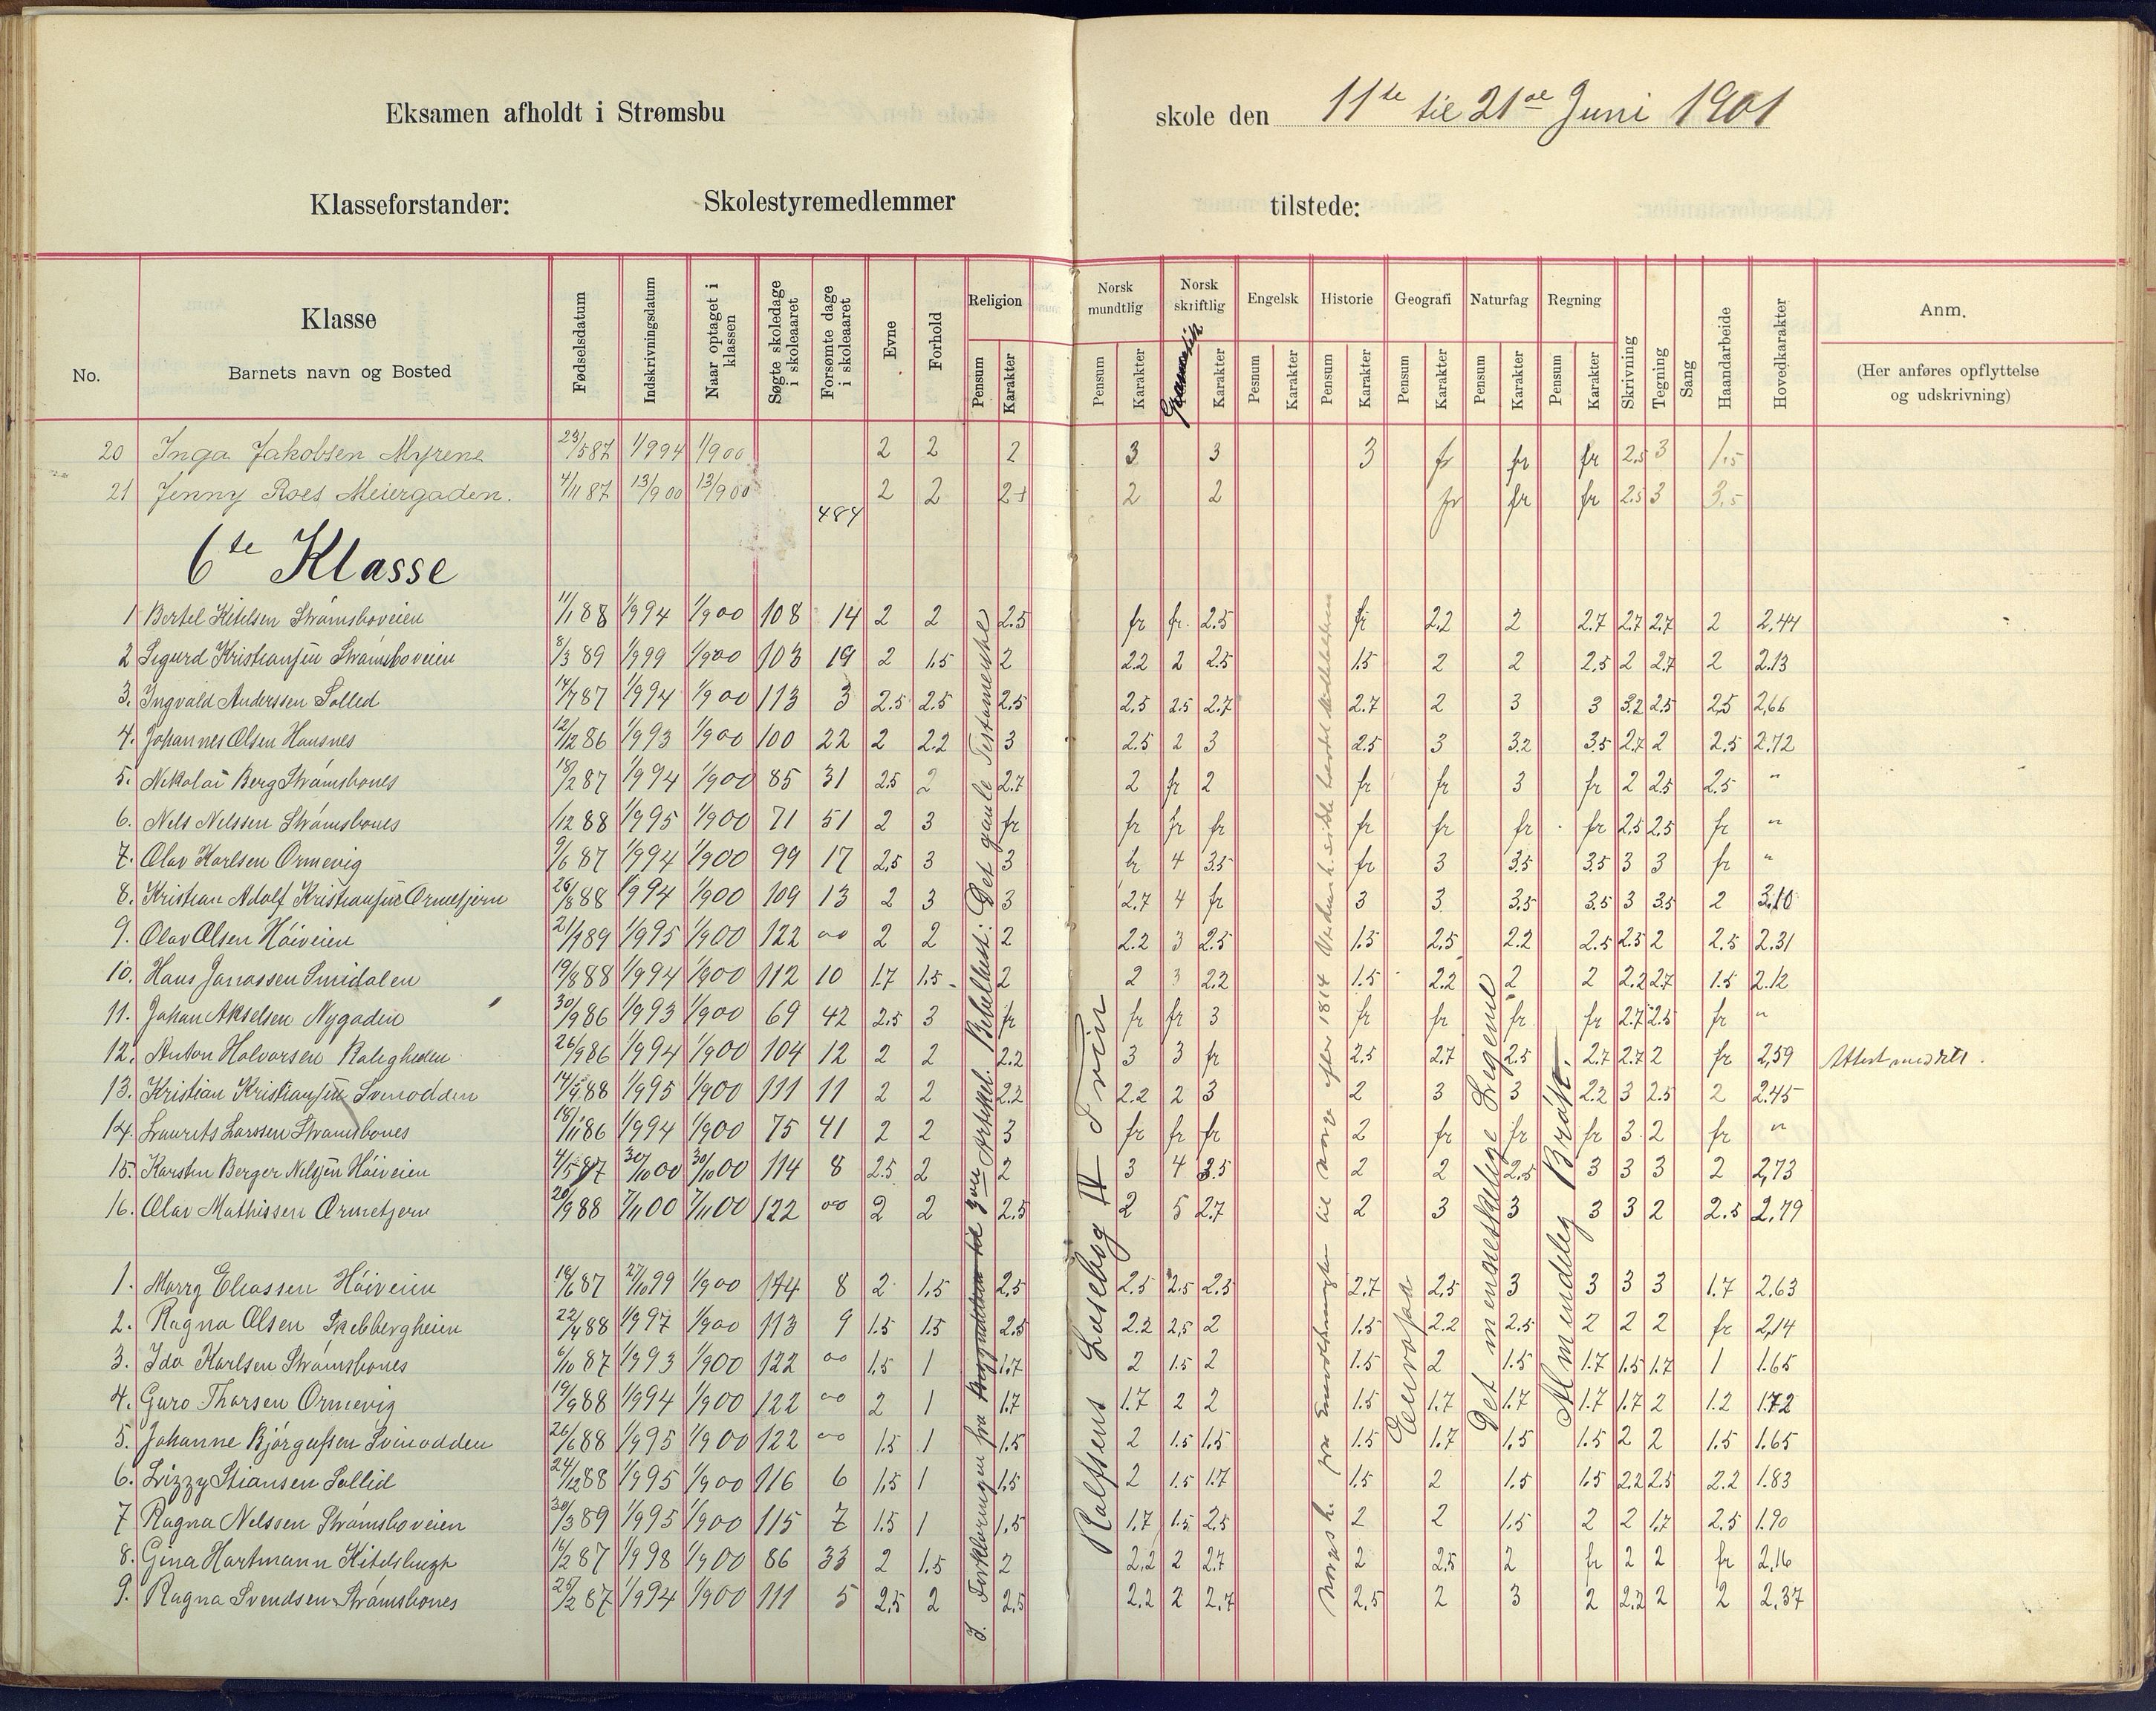 Eksamen afholdt i Strømsbu skole den 11te til 21de Juni 1901
Klasseforstander: Skolestyremedlemmer tilstede:
No. Klasse Barnets navn og Bosted Fødselsdatum Indskrivningsdatum Naar optaget i klassen Søgte skoledage i skoleaaret Forsømte dage i skoleaaret Evne Forhold Religion Pensum Karakter Norsk mundtlig Pensum Karakter Norsk skriftlig Grammatik Karakter Engelsk Pesnum Karakter Historie Pensum Karakter Geografi Pensum Karakter Naturfag Pensum Karakter Regning Pensum Karakter Skrivning Tegning Sang Haandarbeide Hovedkarakter Anm. (Her anføres opflyttelse og udskrivning)
20 Inga Jakobsen Myrene 23/5 87 1/9 94 1/9 00 2 2 2 3 3 3 fr fr fr 2.5 3 1.5
21 Jenny Roes Meiergaden. 4/11 87 13/9 00 13/9 00 2 2 2+ 2 2 fr fr fr 2.5 3 3.5
484
6te Klasse
1 Bertel Kitilsen Strømsboveien 11/1 88 1/9 94 1/9 00 108 14 2 2 2.5 fr fr. 2.5 fr 2.2 2 2.7 2.7 2.7 2 2.44
2 Sigurd Kristiansen Strømsboveien 8/3 89 1/9 99 1/9 00 103 19 2 1.5 2 2.2 2 2.5 1.5 2 2 2.5 2 2.7 2 2.13
3. Ingvald Anderssen Solled 14/7 87 1/9 94 1/9 00 113 3 2.5 2.5 2.5 2.5 2.5 2.7 2.7 2 3 3 3.2 2.5 2.5 2,66
4. Johannes Olsen Hansnes 12/12 86 1/9 93 1/9 00 100 22 2 2.2 3 2.5 2 3 2.5 3 3.2 3.5 2.7 2 2.5 2.72
5. Nikolai Berg Strømsbones 18/2 87 1/9 94 1/9 00 85 31 2.5 2 2.7 2 fr 2 fr fr 3 fr 2 2.5 2.5 "
6. Nels Nelssen Strømsbones /12 88 1/9 95 1/9 00 71 51 2 3 fr fr fr fr fr fr fr fr 2.5 2.5 fr "
7. Olav Karlsen Ormevig 9/6 87 1/9 94 1/9 00 99 17 2,5 3 3 fr 4 3.5 fr 3 3.5 3.5 3 3 fr "
8. Kristian Adolf Kristiansen Ormetjern 26/8 88 1/9 94 1/9 00 109 13 2 3 3 2.7 4 fr 3 3 3.5 3.5 3 3.5 2 3.10
9. Olav Olsen Høiveien 21/1 89 1/9 95 1/9 00 122 00 2 2 2 2.2 3 2.5 1.5 2.5 2.2 2.5 2.5 2 2.5 2.31
10. Hans Jonassen Smidalen 19/8 88 1/9 94 1/9 00 112 10 1.7 1.5 2 2 3 2.2 1.5 2.2 2 2 2.2 2.7 1.5 2.12
11. Johan Akselsen Nygaden 30/9 86 1/9 93 1/9 00 69 42 2.5 3 fr fr fr 3 fr fr fr fr 2.7 2.5 fr "
12. Anton Halvorsen Roligheden 26/9 86 1/9 94 1/9 00 104 12 2 2 2.2 3 3 fr 2.5 2.7 2.5 2.7 2.7 2 fr 2,59 Attest meddelt.
13. Kristian Kristiansen Svinodden 14/9 88 1/9 95 1/9 00 111 11 2 2 2.2 2.2 2 3 2 3 3 2.2 3 2.5 2 2.45
14. Laurits Larssen Strømsbones 18/11 86 1/9 94 1/9 00 75 41 2 2 3 fr fr fr 2 fr fr fr 3 2 fr "
15. Karsten Berger Nelsen Høiveien 4/5 87 30/10 00 30/10 00 114 8 2.5 2 2 3 4 3.5 2 2 2.5 3 3 3 2 2,73
16. Olav Mathissen Ormetjern 20/9 88 7/11 00 7/11 00 122 00 2 2 2.5 2 5 2.7 2 3 3 3 3 2 2.5 2.79
1. Marry Eliassen Høiveien 18/6 87 27/10 99 1/9 00 144 8 2 1.5 2.5 2.5 2.5 2.5 2.7 2.5 3 3 3 3 1.7 2.63
2. Ragna Olsen 22/4 88 1/9 97 1/9 00 113 9 1.5 1.5 2.5 2.2 2,5 2 1.5 2.2 2.5 2 2 2 fr 2,14
3. Ida Karlsen Strømsbones 6/10 87 1/9 93 1/9 00 122 00 1.5 1 1.7 2 1.5 2 1.5 2 1.5 1.7 1.5 1.7 1 1.65
4. Guro Thorsen Ormevig 19/9 88 1/9 94 1/9 00 122 00 2 1 1.7 1.7 2 2 1.5 1.7 1.7 1.7 1.7 2 1.2 1.72
5. Johanne Bjørgufsen Svinodden 26/6 88 1/9 95 1/9 00 122 00 1.5 1 1.5 2 1.5 1.5 1.5 1.7 1.5 1.5 2 2 1.5 1.65
6. Lizzy Stiansen Sollid 24/12 88 1/9 95 1/9 00 116 6 1,5 1 1,5 2 1.5 1.7 1.5 2 1.5 1.5 2.2 2.5 2.2 1.83
7 Ragna Nelssen Strømsboveien 30/3 89 1/9 95 1/9 00 115 7 1.5 1 1,5 1.7 1.5 2.5 2 2 1.5 2 2 1.7 2.5 1.90
8. Gina Hartmann Kitelsbugt 16/2 87 1/9 98 1/9 00 86 33 2 1.5 2 2.2 2 2.7 2 2.5 2 fr 2 2 fr 2,16
9. Ragna Svendsen Strømsbones 26/2 87 1/9 94 1/9 00 111 5 2.5 2 2,5 2.2 2 2.7 2.5 2 3 2 2.2 2 2 2.37
Forklaringen fra Begyndelsen til 3die Artikel. Bibelhist: Det gamle Testamente
Rolfsens Læsebog IV Trin
Norsk h. fra til Norge efter 1814 Verdensh. sidste
Europa
Det menneskelige Legeme
Almindelig Brøk.